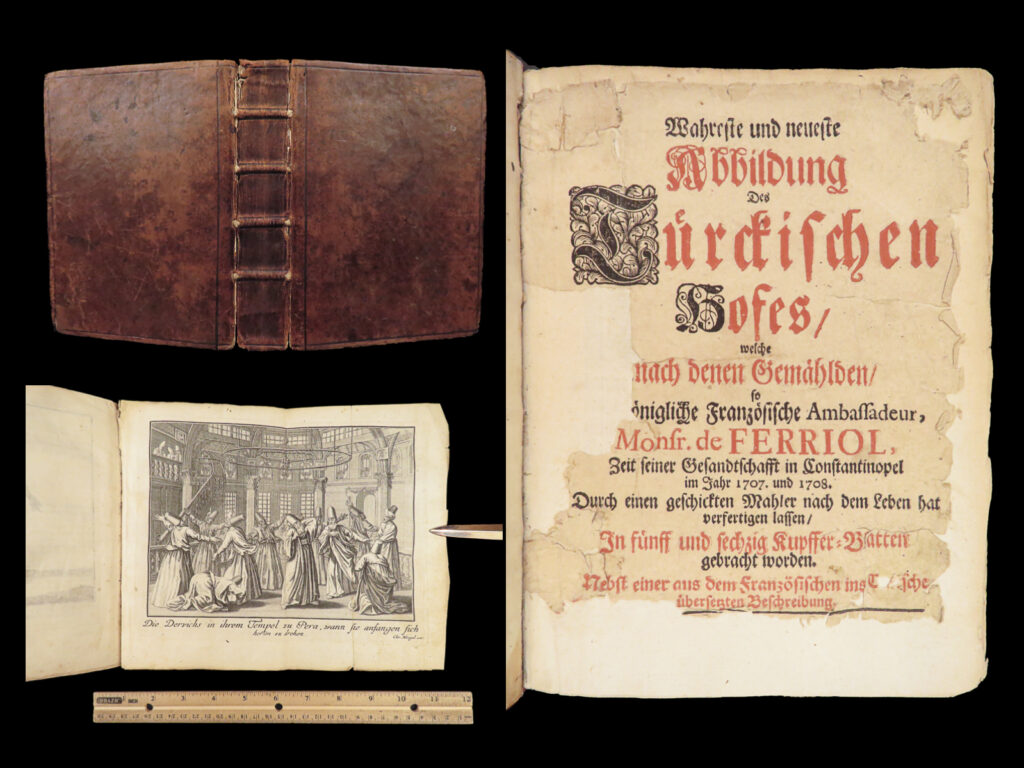 Wahreste und neueste
Abbildung
Des
Türckischen
Hofes/
welche
nach denen Gemählden/
so
önigliche Französische Ambassadeur,
Monsr. de FERRIOL,
Zeit seiner Gesandtschafft in Constantinopel
im Jahr 1707. und 1708.
Durch einen geschickten Mahler nach dem Leben hat
verfertigen lassen/
In fünff und sechzig Kupffer-Blatten
gebracht worden.
Nebst einer aus dem Französischen ins T sche
übersetzten Beschreibung
Die Dervichs in ihrem Tempel zu Pera, wann sie anfangen sich
herum zu drehen
1 2 3 4 5 6 7 8 9 10 11 12